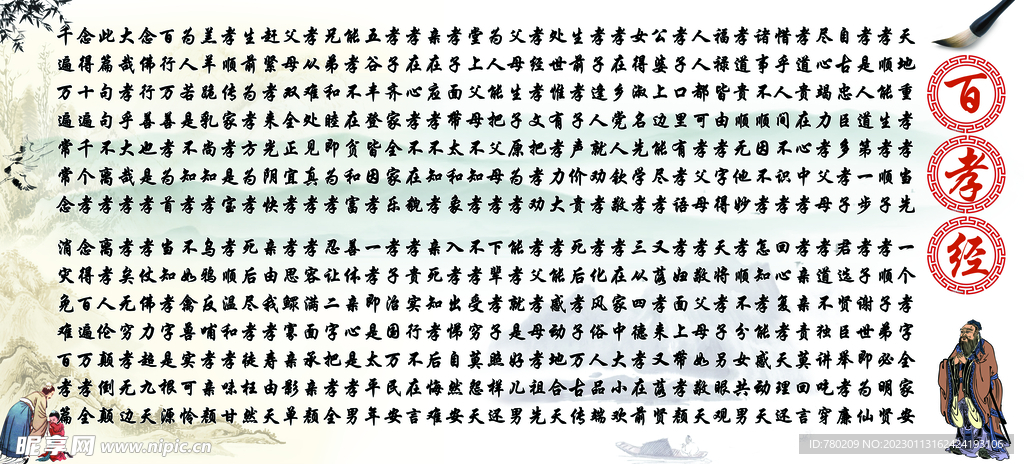 百孝经
天地重孝孝当先
孝顺能生孝顺子
孝是人道第一步
自古忠臣多孝子
尽心竭力孝父母
孝道贵在心中孝
惜乎人间不识孝
诸事不顺因不孝
孝道贵顺无他妙
福禄皆由孝字得
人人都可孝父母
孝子口里有孝语
公婆上边能尽孝
女得淑名先学孝
孝在乡党人钦敬
孝子逢人就劝孝
生前孝子声价贵
处世惟有孝力大
孝经孝文把孝劝
父母生子原为孝
为人能把父母孝
堂上父母不知孝
孝子面带太和象
亲在应孝不知孝
孝在心孝不在貌
孝子齐家全家乐
五谷丰登皆因孝
能孝不在贫和富
兄弟和睦即为孝
孝从难处见真孝
父母双全正宜孝
赶紧孝来光阴快
生前为孝方为孝
孝顺传家孝是宝
羔羊跪乳尚知孝
为人若是不知孝
百行万善孝为首
念佛行善也是孝
大哉孝乎大哉孝
此篇句句不离孝
念得十遍千个孝
千遍万遍常常念
一个孝字全家安
孝顺子弟必明贤
孝子谢世即为仙
君选贤臣举孝廉
孝道不独讲吃穿
孝亲亲贵莫回言
回心复孝天理还
怎知孝能感动天
孝顺不分女共男
天将孝子另眼观
孝敬父母如敬天
孝妇面上带孝颜
又荫孝来又荫贤
三从四德孝在前
孝在家中大小欢
孝化风俗人品端
死后孝子万古传
孝能感动地合天
孝父孝母孝祖先
能孝就是好儿男
下辈孝子照样还
不孝受穷莫怨天
入孝出悌自然安
亲死知孝后悔难
孝贵实行不在言
孝子治国万民安
一孝即是太平年
善体亲心是孝男
忍让二字把孝全
孝容满面承亲颜
孝思鳏寡亲影单
亲由我孝寿由天
死后尽孝徒枉然
孝顺温和孝味甘
乌鸦反哺孝亲颜
不如禽喜实可怜
当知孝字是根源
孝仗佛力超九天
孝矣死穷孝死边
离孝人伦颠倒颠
念得百遍万孝全
消灾免难百孝篇
昵享网 www.nipic.cn
ID:780209 NO:20230113162424193106